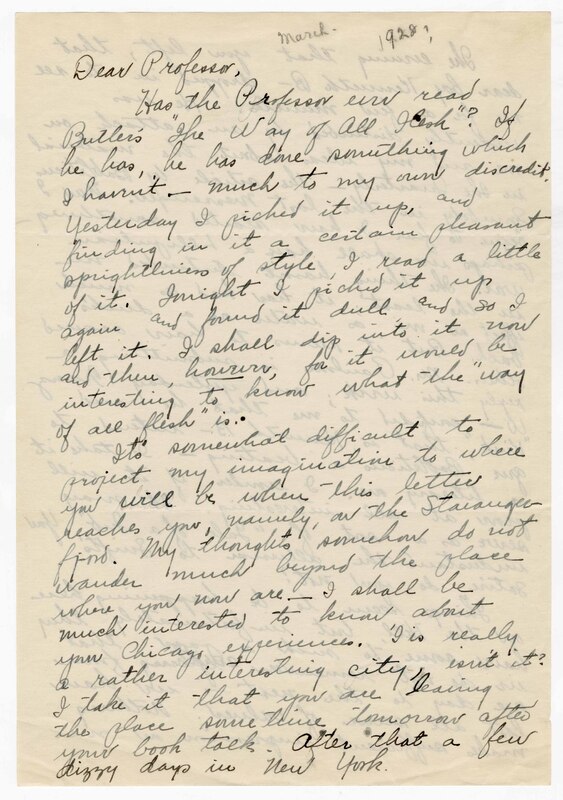 March - 1928?
Dear Professor,
Has the Professor ever read
Butler's "The Way of All Flesh"? If
he has, he has done something which
I havn't — much to my own discredit.
Yesterday I picked it up, and
finding in it a certain pleasant
sprightliness of style I read a little
of it. Tonight I picked it up
again and found it dull, and so I
left it. I shall dip into it now
and then, however, for it would be
interesting to know what the "way
of all flesh" is.
It's somewhat difficult to
project my imagination to where
you will be when this letter
reaches you, namely, on the Stavanger-
fjord. My thoughts somehow do not
wander much beyond the place
where you now are. — I shall be
much interested to know about
your Chicago experiences. 'Tis really
a rather interesting city, isn't it?
I take it that you are leaving
the place some time tomorrow after
your book talk. After that a few
dizzy days in New York.